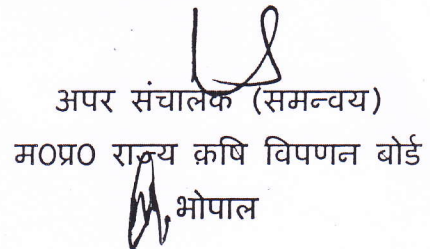 अपर संचालक (समन्वय)
म0प्र0 राज्य क़षि विपणन बोर्ड
भोपाल